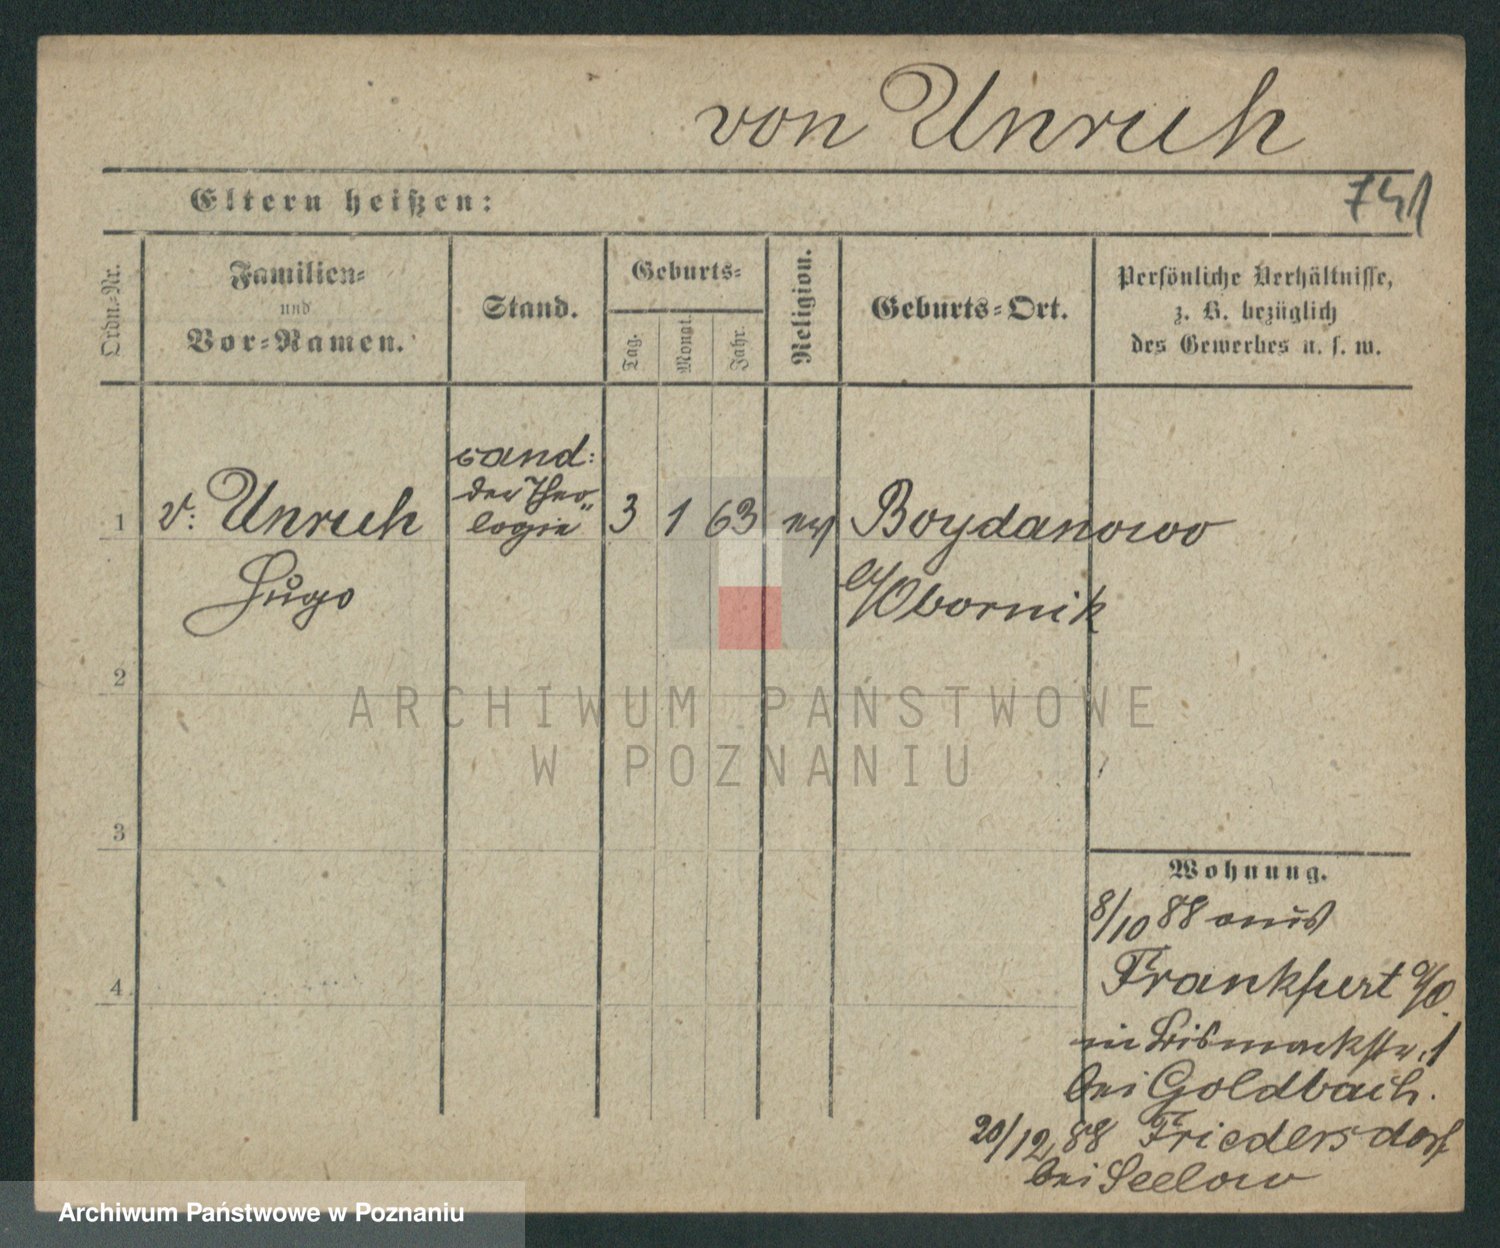 von Unruh
741
Eltern heißen:
Ordn.-Nr.
Familien-
und
Vor-Namen.
Stand.
Geburts-
Tag.
Monat.
Jahr.
Religion.
Geburts-Ort.
Persönliche Verhältnisse,
z. B. bezüglich
des Gewerbes u. s. w.
1
v. Unruh
Hugo
cand:
der Theo-
logie
3
1
63
ev
Bogdanowo
a/Obornik
2
3
4
Wohnung.
8/10 88 aus
Frankfurt a/O.
Bismarkstr. 1
bei Goldbach.
20/12 88 Friedersdorf
bei Seelow
ARCHIWUM PAŃSTWOWE
W POZNANIU
Archiwum Państwowe w Poznaniu